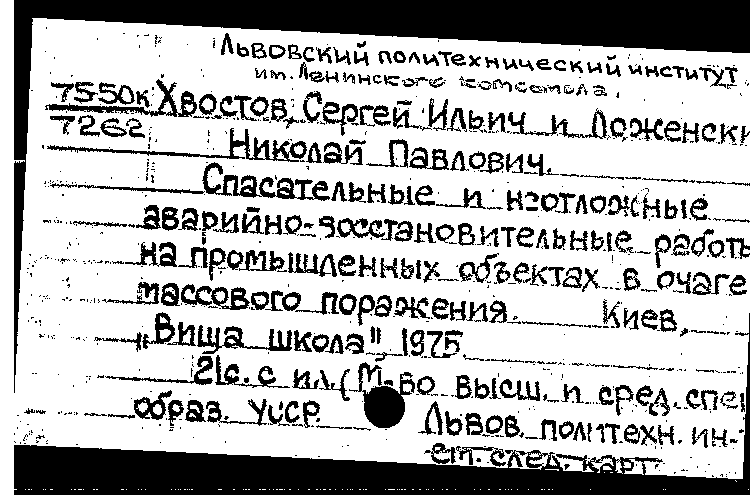 Львовский политехнический институт
им. Ленинского комсомола.
7550к Хвостов, Сергей Ильич и Доженски
7262
Николай Павлович.
Спасательные и неотложные
аварийно-восстановительные работы
на промышленных объектах в очаге
массового поражения. Киев,
"Вища школа" 1975
21с. с ил. (М-во высш. и сред. спец
образ. УССР. Львов. политехн. ин-т
см. след. карт